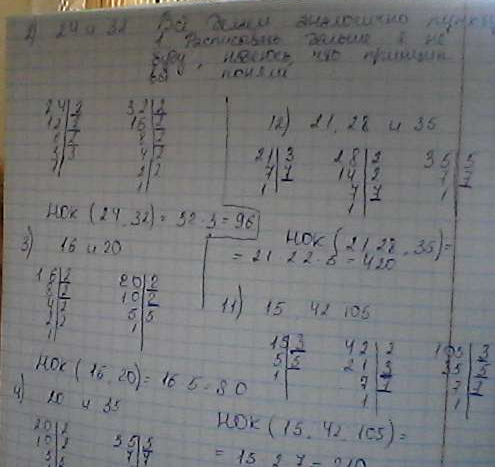 2) 24 и 32 Всё делаем аналогично пункту
1. Расписывать дальше я не
буду, надеюсь, что принцип
вы поняли
24|2 32|2
12|2 16|2
6|2 8|2
3|3 4|2
1 2|2
1
НОК (24, 32) = 32·3 = 96
3) 16 и 20
16|2 20|2
8|2 10|2
4|2 5|5
2|2 1
1
НОК (16, 20) = 16·5 = 80
4) 20 и 35
20|2 35|5
10|2 7|7
5|5
12) 21, 28 и 35
21|3 28|2 35|5
7|7 14|2 7|7
1 7|7 1
1
НОК (21, 28, 35) =
= 21·2·2·5 = 420
11) 15, 42, 105
15|3 42|2 105|3
5|5 21|3 35|5
1 7|7 7|7
1 1
НОК (15, 42, 105) =
= 15·2·7 = 210